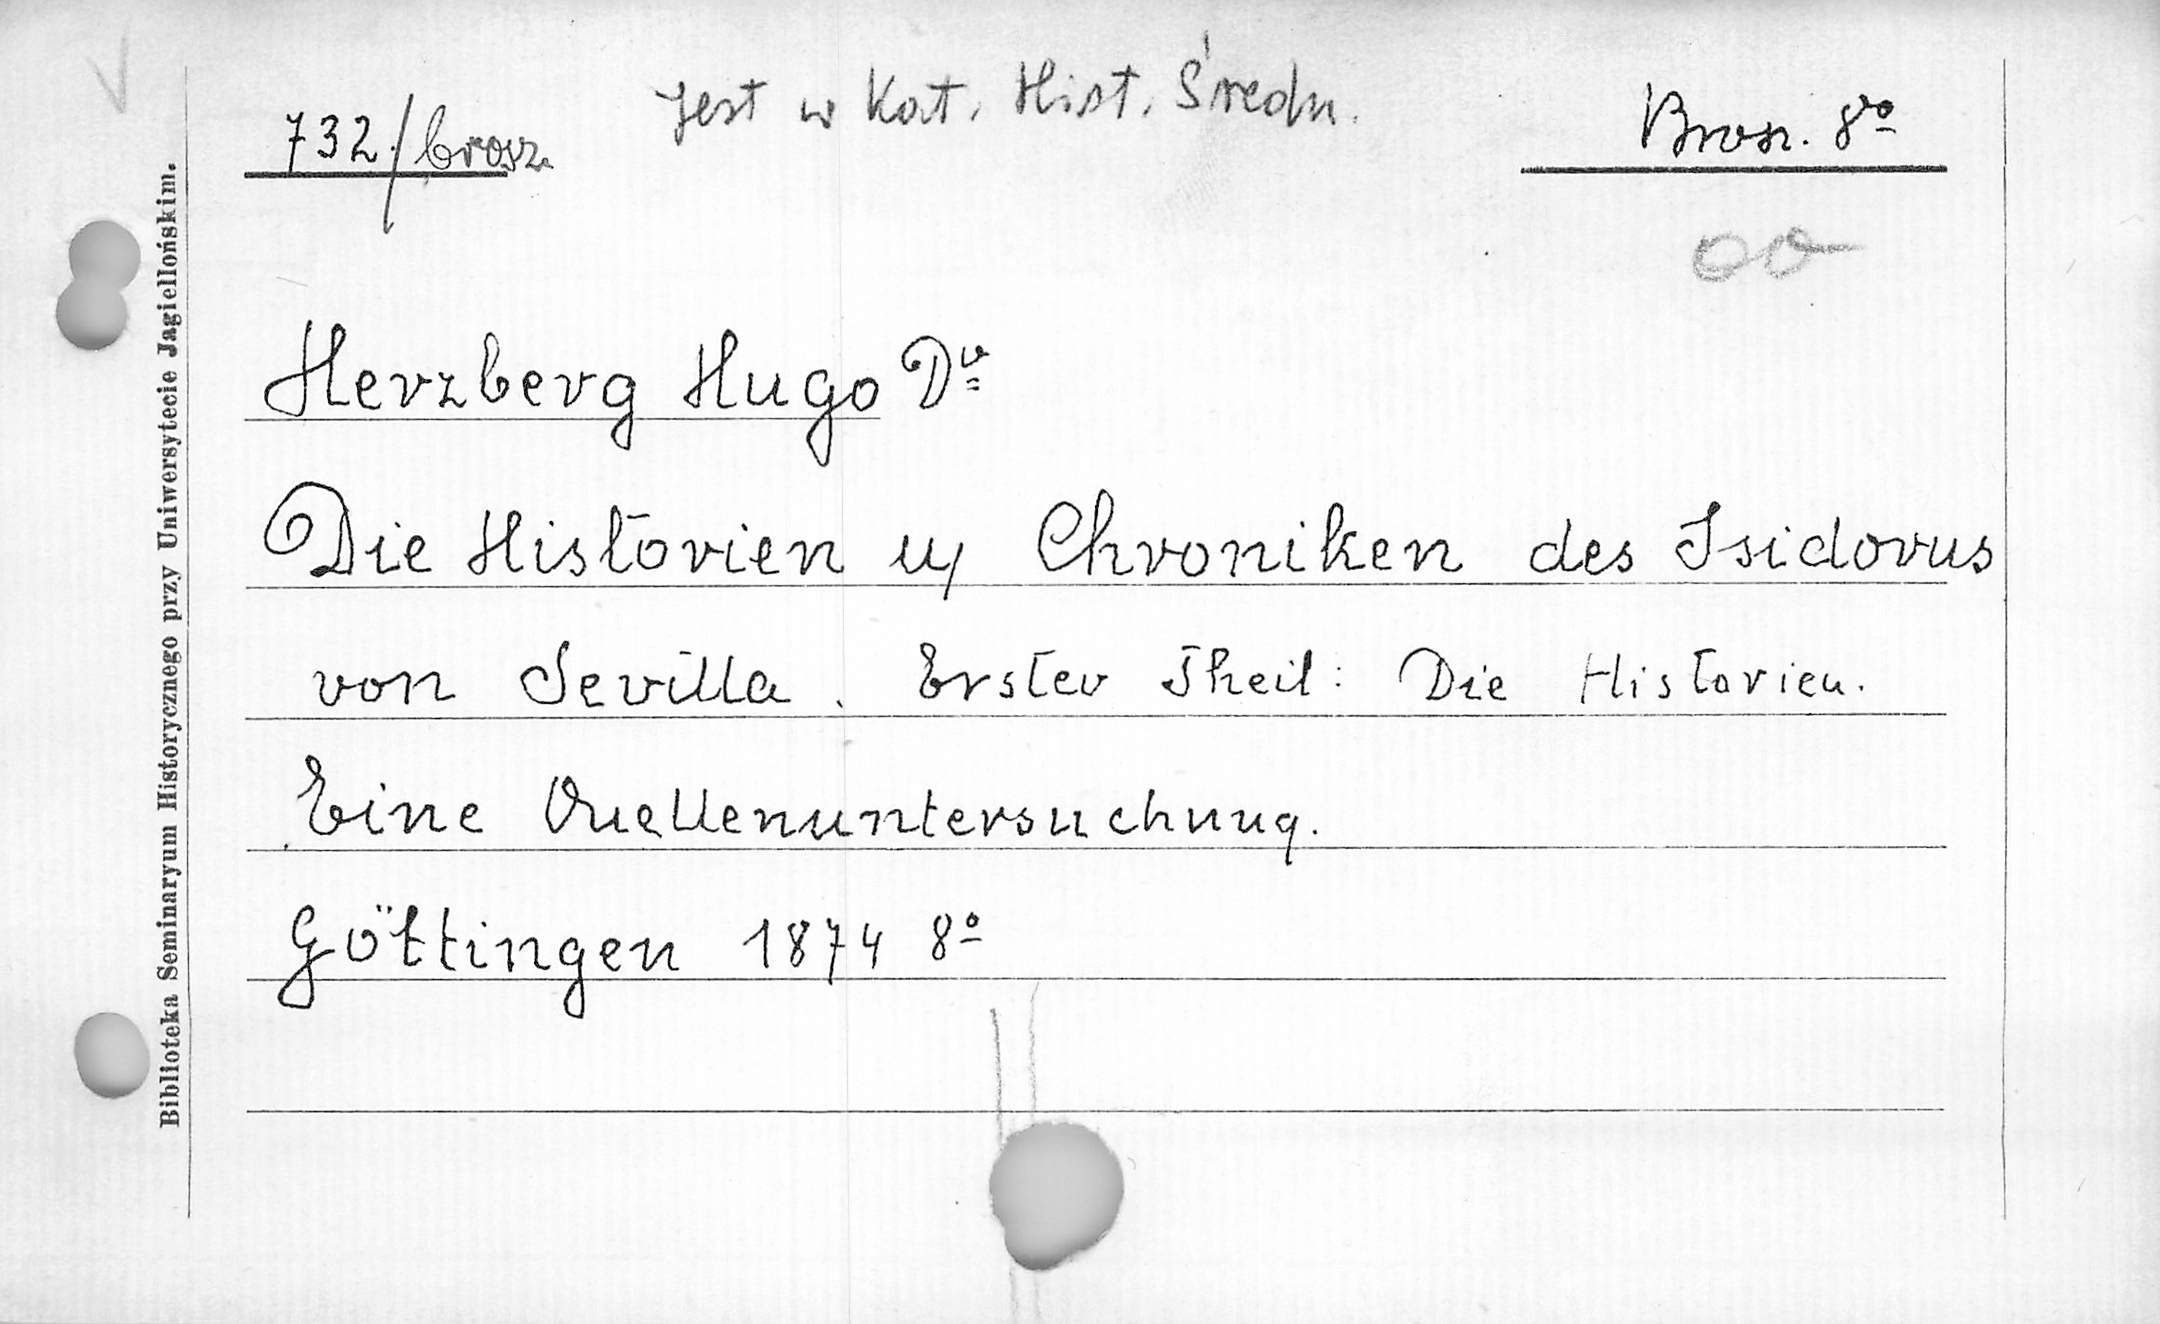 732/brosz.
Jest w Kat. Hist. Średn.
Bros. 8º
Herzberg Hugo Dr
Die Historien u/ Chroniken des Isidorus
von Sevilla. Erster Theil: Die Historien.
Eine Quellenuntersuchung.
Göttingen 1874 8º
Biblioteka Seminaryum Historycznego przy Uniwersytecie Jagiellońskim.